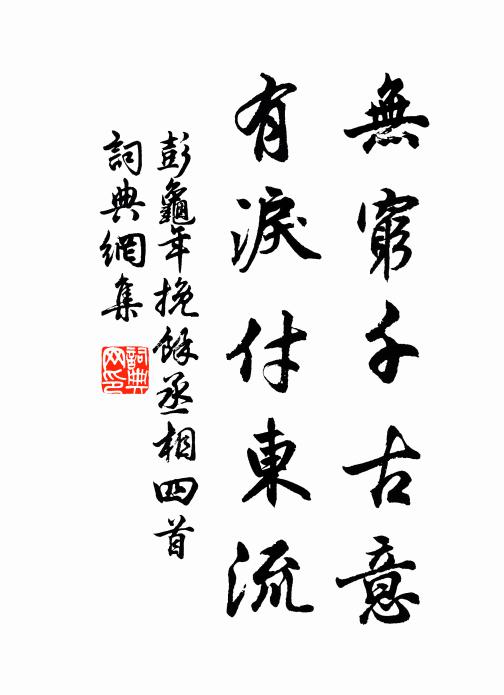 無窮千古意
有淚付東流
彭龜年挽餘丞相四首
詞典網集
詞典網印